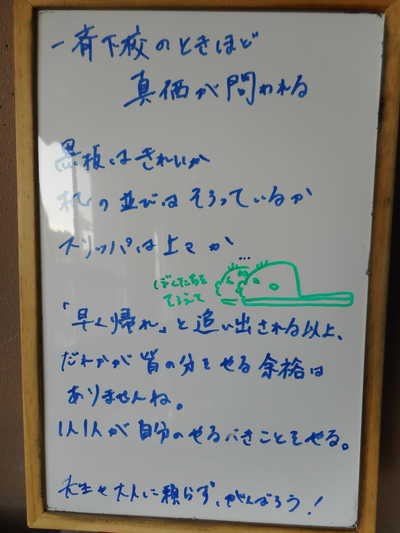 一斉下校のときほど
真価が問われる
黒板はきれいか
机の並びはそろっているか
スリッパは上々か
…
ぼくたちを
そろえて
「早く帰れ」と追い出される以上、
だれかが皆の分をやる余裕は
ありませんね。
1人1人が自分のやるべきことをやる。
先生や大人に頼らず、がんばろう!